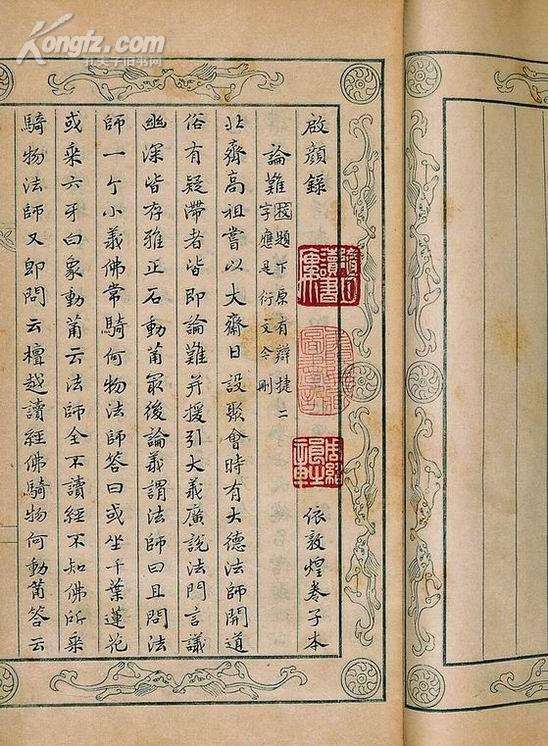 Kongfz.com
孔夫子旧书网
啟顔錄
依敦煌卷子本
論難
按題下原有辯捷二
字應是衍文今刪
北齊高祖嘗以大齋日設聚會時有大德法師開道
俗有疑滯者皆即論難并援引大義廣說法門言議
幽深皆存雅正石動莆最後論義謂法師曰且問法
師一个小義佛常騎何物法師答曰或坐千葉蓮花
或乘六牙白象動莆云法師全不讀經不知佛所乘
騎物法師又即問云檀越讀經佛騎物何動莆答云